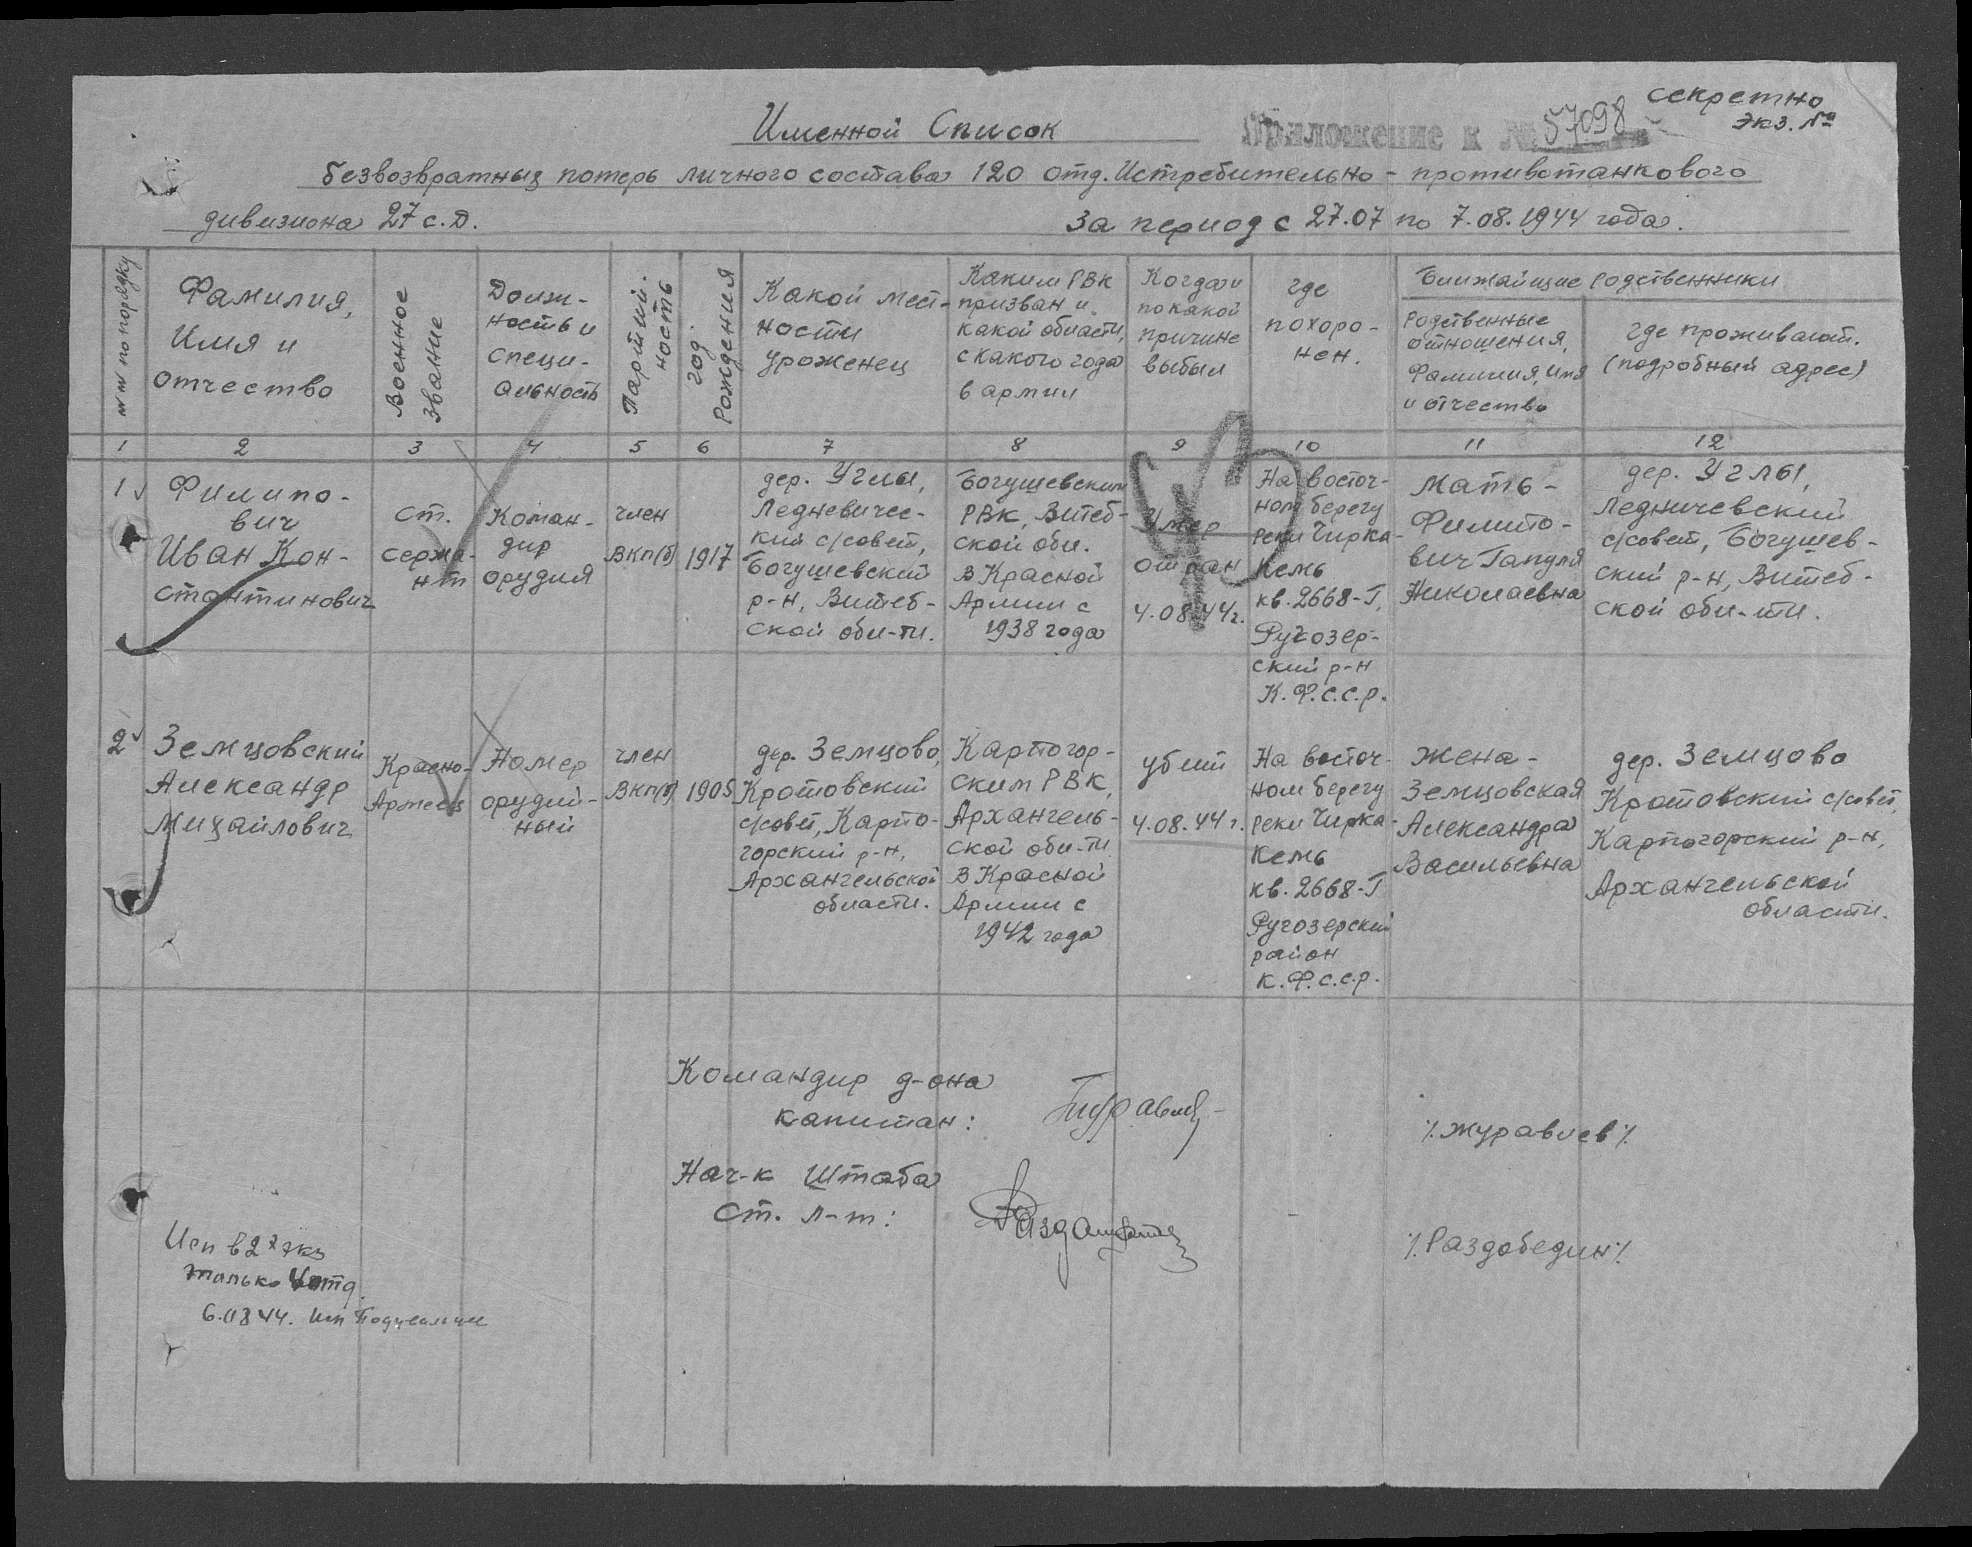 секретно
Экз. №
Именной Список
Приложение к № 57098
безвозвратных потерь личного состава 120 отд. Истребительно - противотанкового
дивизиона 27 с.д.
За период с 27.07 по 7.08.1944 года.
№ № по порядку
Фамилия,
Имя и
отчество
Военное
звание
Долж-
ность и
специ-
альность
Партий-
ность
год
Рождения
Какой мест-
ности
уроженец
Каким РВК
призван и
какой области,
с какого года
в армии
Когда и
по какой
причине
выбыл
где
похоро-
нен.
Ближайшие родственники
Родственные
отношения,
Фамилия, имя
и отчество
где проживают.
(подробный адрес)
1 2 3 4 5 6 7 8 9 10 11 12
1
Филипо-
вич
Иван Кон-
стантинович
Ст.
сержа-
нт
Коман-
дир
орудия
член
ВКП(б)
1917
дер. Углы,
Ледневичес-
кий с/совет,
Богушевский
р-н, Витеб-
ской обл-ти.
Богушевским
РВК, Витеб-
ской обл.
В Красной
Армии с
1938 года
Умер
от ран
4.08.44 г.
На восточ-
ном берегу
реки Чирка-
Кемь
кв. 2668-Г,
Ругозер-
ский р-н
К.Ф.С.С.Р.
Мать -
Филипо-
вич Гапуля
Николаевна
дер. Углы,
Ледничевский
с/совет, Богушев-
ский р-н, Витеб-
ской обл-ти.
2
Земцовский
Александр
Михайлович
Красно-
Армеец
Номер
орудий-
ный
член
ВКП(б)
1905
дер. Земцово,
Кротовский
с/совет, Карпо-
горский р-н,
Архангельской
области.
Карпогор-
ским РВК,
Архангель-
ской обл-ти
В Красной
Армии с
1942 года
убит
4.08.44 г.
На восточ-
ном берегу
реки Чирка-
Кемь
кв. 2668-Г
Ругозерский
район
К.Ф.С.С.Р.
Жена -
Земцовская
Александра
Васильевна
дер. Земцово
Кротовский с/совет,
Карпогорский р-н,
Архангельской
области.
Командир д-она
капитан:
/.Журавлев/.
Нач-к Штаба
Ст. л-т:
/.Раздобедин/.
Исп в 2х экз
только
6.08.44. исп